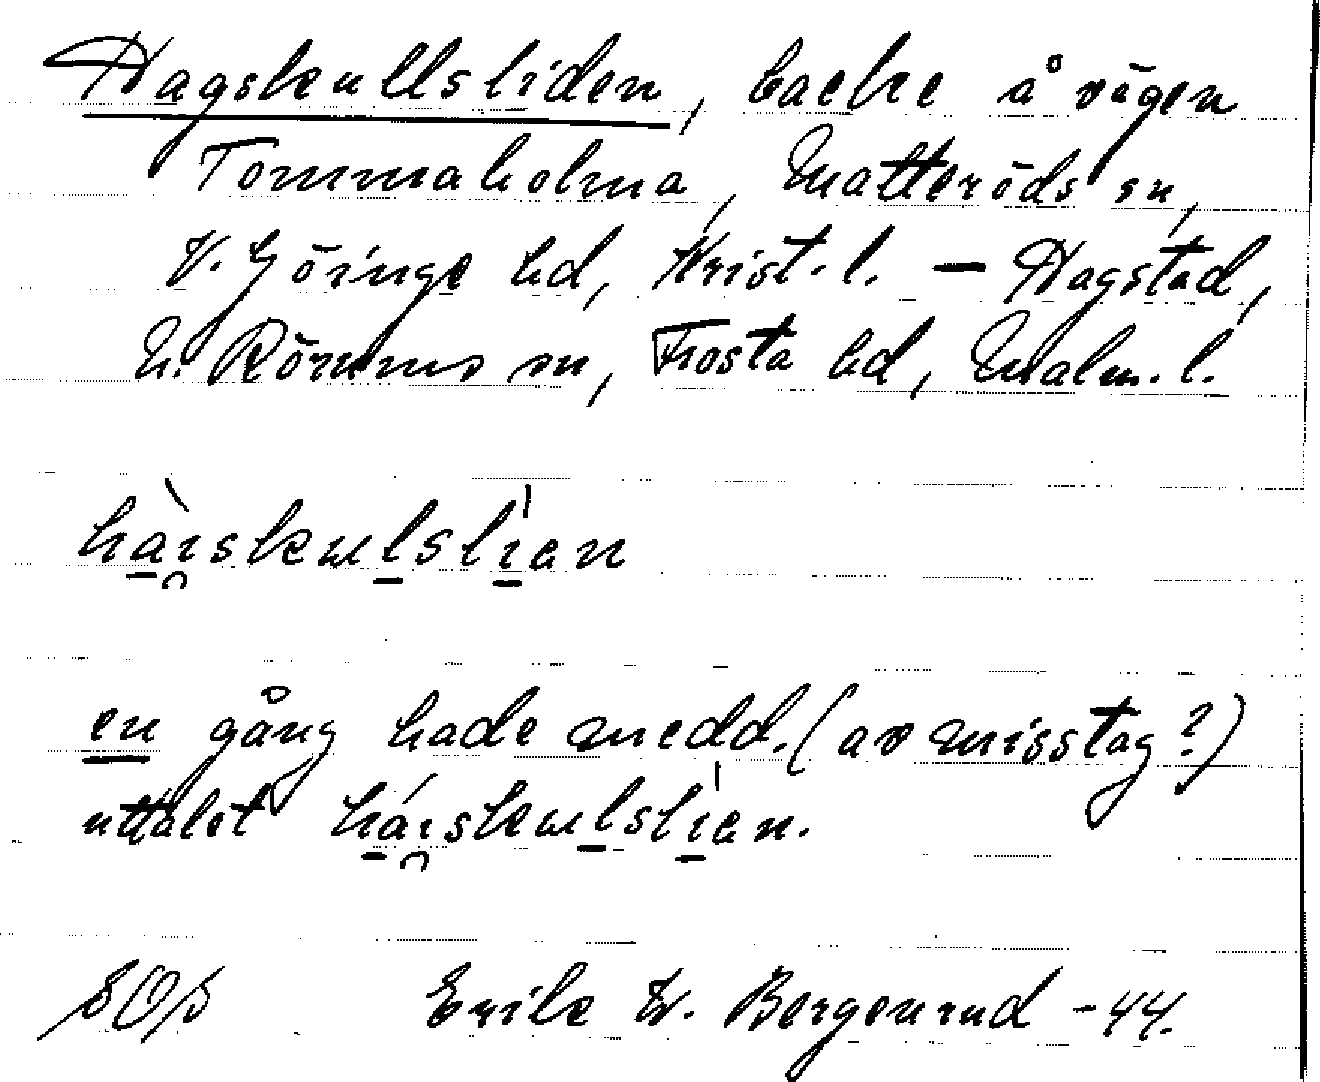 Hagskullsliden, backe å vägen
Tommaholma, Matteröds sn,
V. Göinge hd, Krist. l. — Hagstad,
N. Rörums sn, Frosta hd, Malm. l.
hài̯skulslìan
en gång hade medd. (av misstag?)
uttalet hái̯skulslìan.
SOS Erik W. Bergenrud -44.